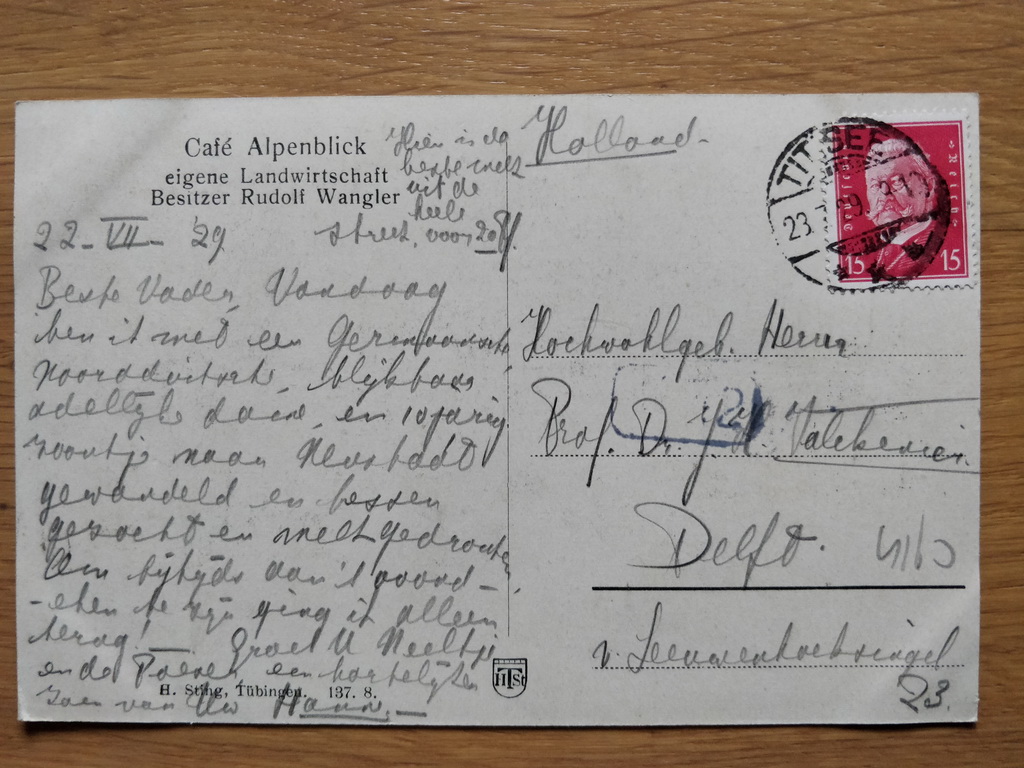 Café Alpenblick
eigene Landwirtschaft
Besitzer Rudolf Wangler
Hier is de
beste melk
uit de
heele
streek, voor 20 Pf.
22-VII-'29
Beste Vader, Vandaag
ben ik met een
Noordduitsche, blijkbaar
adellijke dame en 10 jarig
zoontje naar Neustadt
gewandeld en bessen
gezocht en melk gedronken
Om bijtijds aan 't avond-
-eten te zijn ging ik alleen
terug! Groet U Neeltje
en de Poezen een hartelijken
zoen van Uw Hanna.
H. Sting, Tübingen. 137. 8.
HSt
Holland-
TITISEE
23. 29. 8-9
Deutsches Reich
15 15
Hochwohlgeb. Herrn
Prof. Dr. J. Valckenier
Delft.
v. Leeuwenhoeksingel
23.